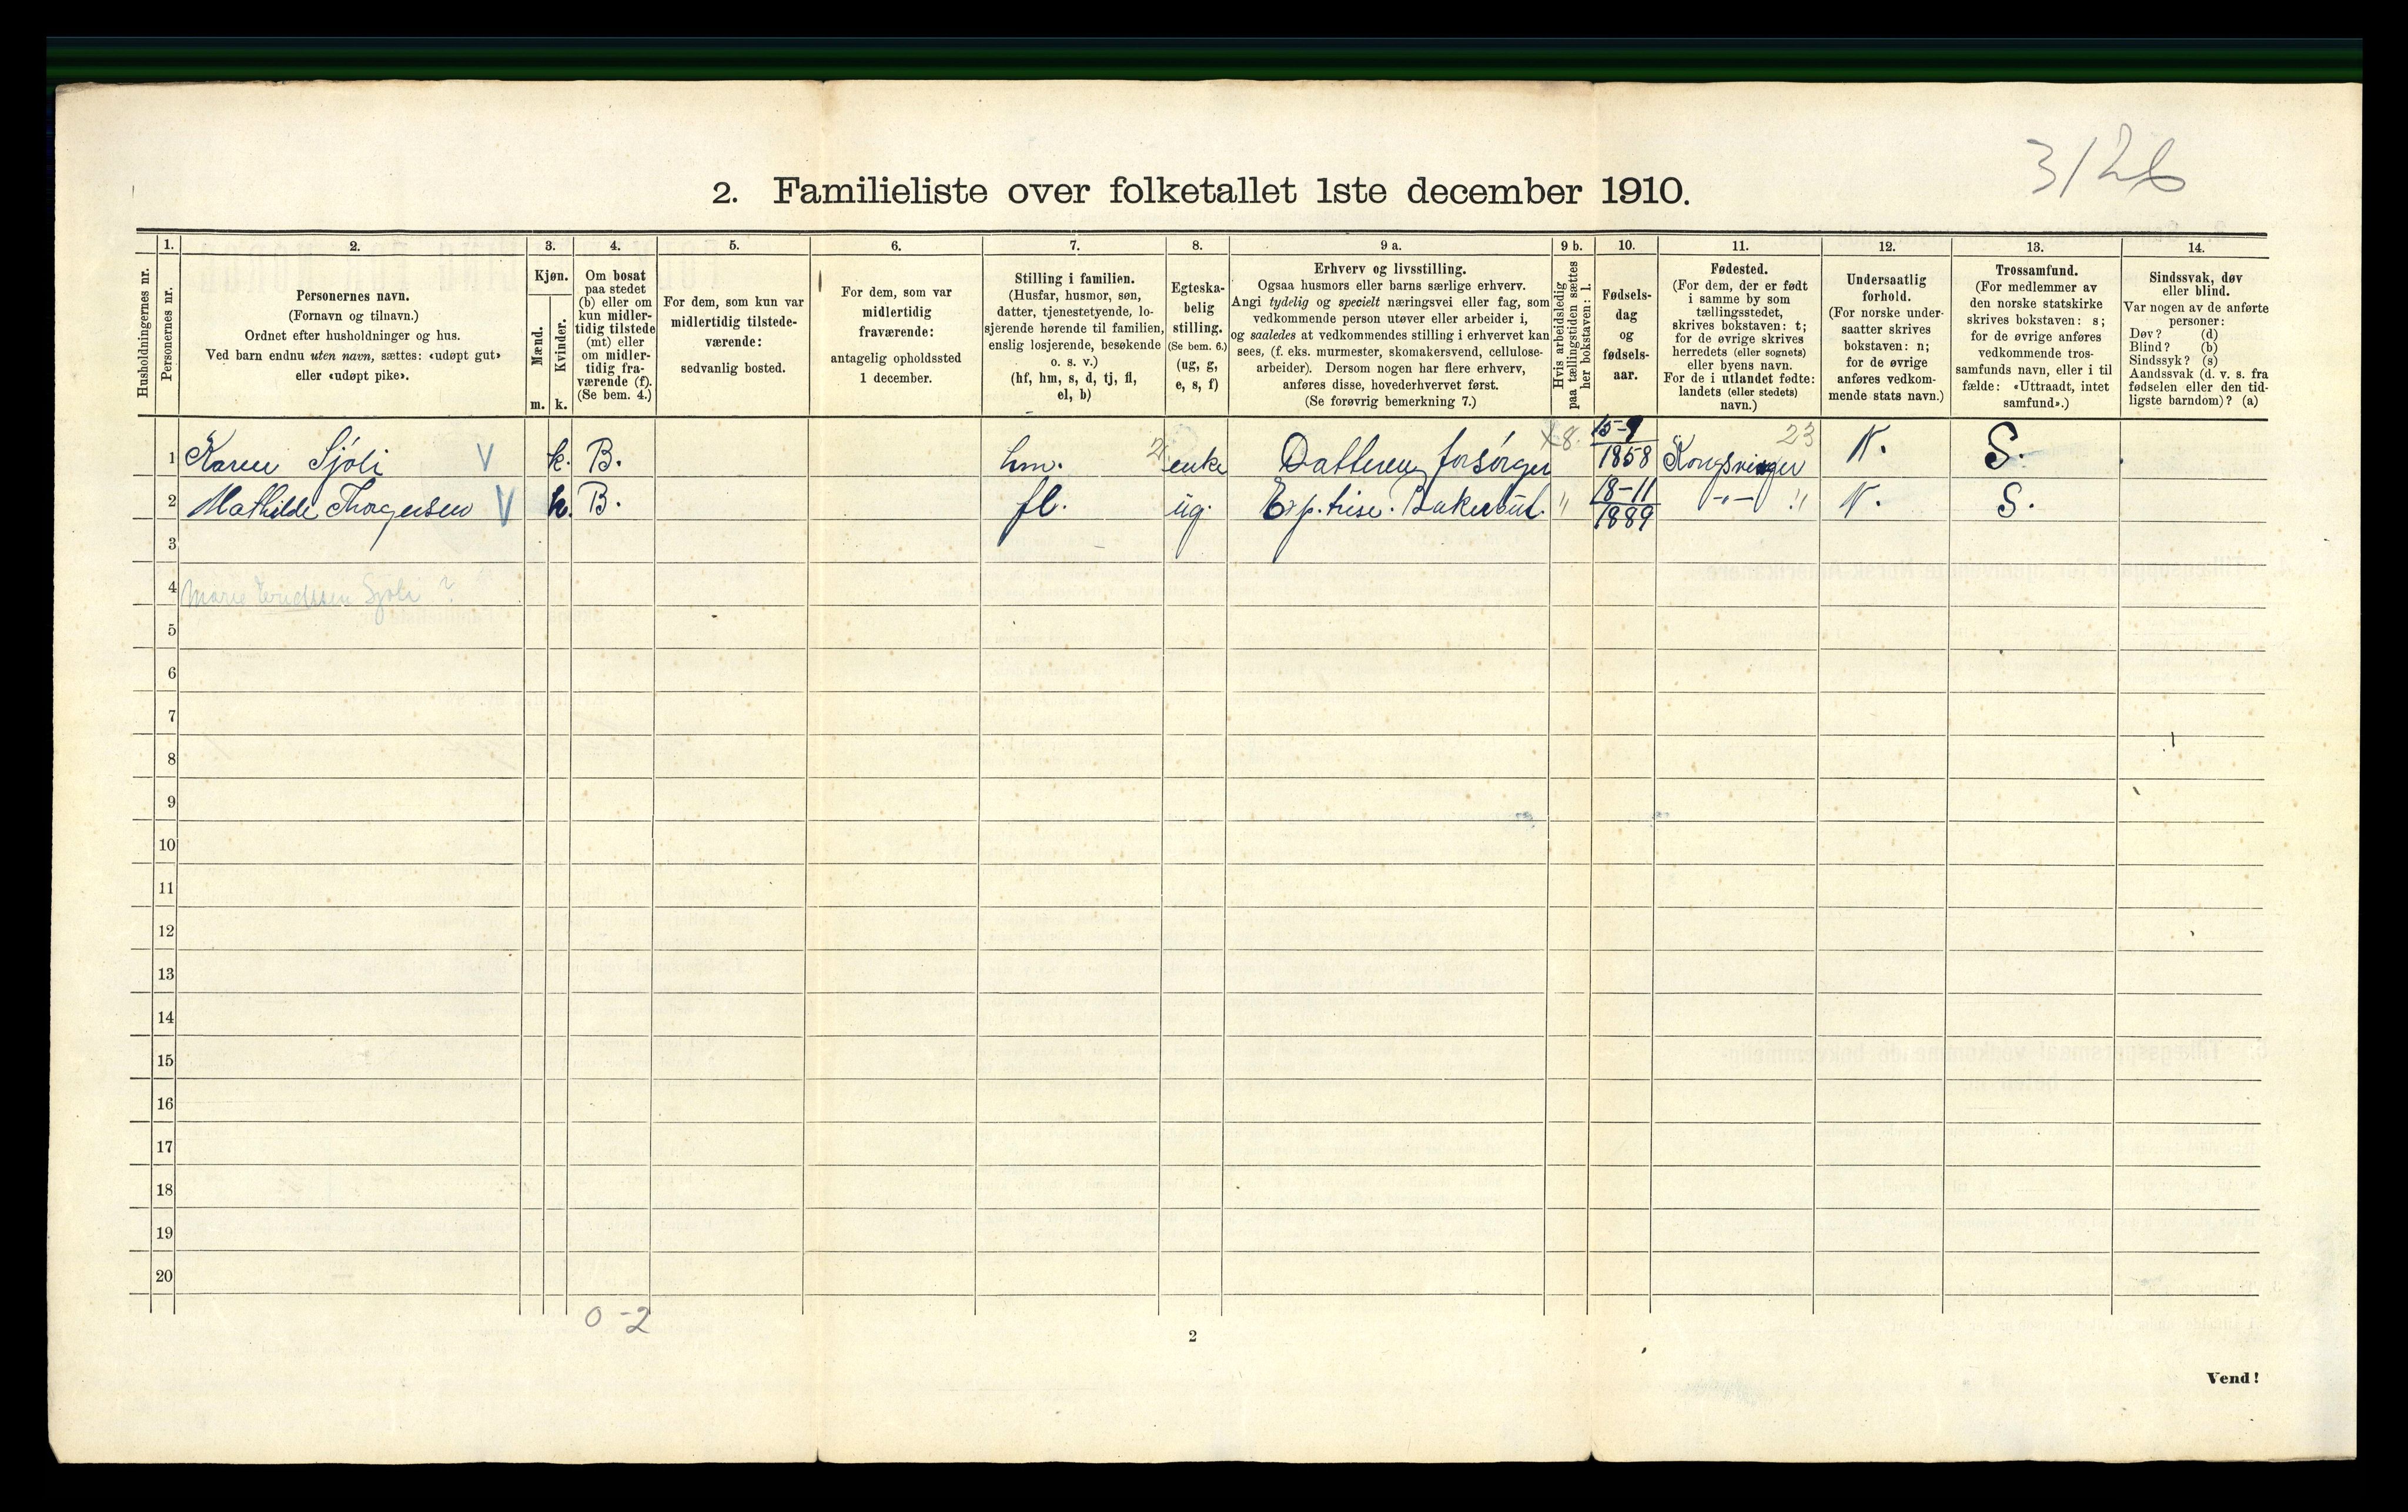 3/26
2. Familieliste over folketallet 1ste december 1910.
Husholdningernes nr.
1.
Personernes nr.
2.
Personernes navn.
(Fornavn og tilnavn.)
Ordnet efter husholdninger og hus.
Ved barn endnu uten navn, sættes: «udøpt gut»
eller «udøpt pike».
3.
Kjøn.
Mænd.
m.
Kvinder.
k.
4.
Om bosat
paa stedet
(b) eller om
kun midler-
tidig tilstede
(mt) eller
om midler-
tidig fra-
værende (f).
(Se bem. 4.)
5.
For dem, som kun var
midlertidig tilstede-
værende:
sedvanlig bosted.
6.
For dem, som var
midlertidig
fraværende:
antagelig opholdssted
1 december.
7.
Stilling i familien.
(Husfar, husmor, søn,
datter, tjenestetyende, lo-
sjerende hørende til familien,
enslig losjerende, besøkende
o. s. v.)
(hf, hm, s, d, tj, fl,
el, b)
8.
Egteska-
belig
stilling.
(Se bem. 6.)
(ug, g,
e, s, f)
9 a.
Erhverv og livsstilling.
Ogsaa husmors eller barns særlige erhverv.
Angi tydelig og specielt næringsvei eller fag, som
vedkommende person utøver eller arbeider i,
og saaledes at vedkommendes stilling i erhvervet kan
sees, (f. eks. murmester, skomakersvend, cellulose-
arbeider). Dersom nogen har flere erhverv,
anføres disse, hovederhvervet først.
(Se forøvrig bemerkning 7.)
9 b.
Hvis arbeidsledig
paa tællingstiden sættes
her bokstaven: l.
10.
Fødsels-
dag
og
fødsels-
aar.
11.
Fødested.
(For dem, der er født
i samme by som
tællingsstedet,
skrives bokstaven: t;
for de øvrige skrives
herredets (eller sognets)
eller byens navn.
For de i utlandet fødte:
landets (eller stedets)
navn.)
12.
Undersaatlig
forhold.
(For norske under-
saatter skrives
bokstaven: n;
for de øvrige
anføres vedkom-
mende stats navn.)
13.
Trossamfund.
(For medlemmer av
den norske statskirke
skrives bokstaven: s;
for de øvrige anføres
vedkommende tros-
samfunds navn, eller i til
fælde: «Uttraadt, intet
samfund».)
14.
Sindssvak, døv
eller blind.
Var nogen av de anførte
personer:
Døv? (d)
Blind? (b)
Sindssyk? (s)
Aandssvak (d. v. s. fra
fødselen eller den tid-
ligste barndom)? (a)
1 Karen Sjøli V k. B. hm. enke Datteren forsørger 8. 15-9 1858 Kongsvinger 23 N. S.
2 Mathilde Thorgersen V k. B. fl. ug. Exp.trise. Bakerbut. " 18-11 1889 -"- " N. S.
3
4 Marie Sjøli ?
5
6
7
8
9
10
11
12
13
14
15
16
17
18
19
20
0-2
2
Vend!